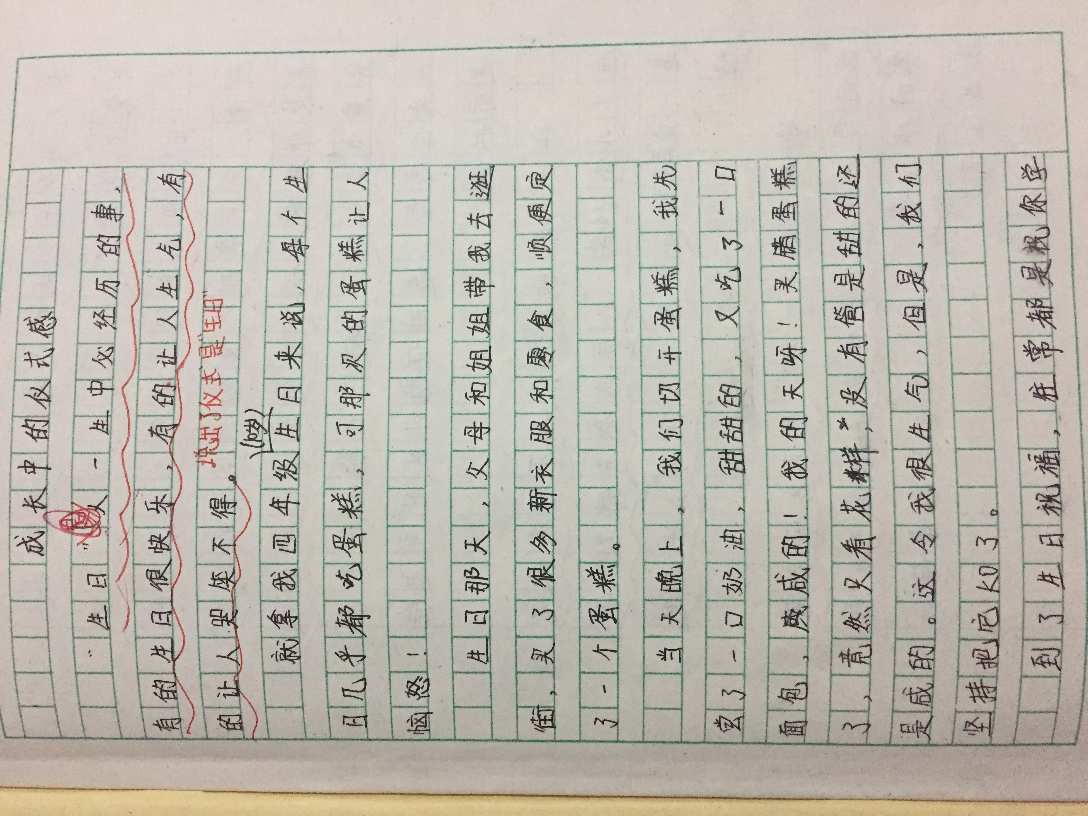 成长中的仪式感
“生日”是人一生中必经历的事，
有的生日很快乐，有的让人生气，有
的让人哭笑不得。
境出了仪式是“生日”
(10岁)
就拿我四年级生日来说，每个生
日几乎都吃蛋糕，可那次的蛋糕让人
恼怒！
生日那天，父母和姐姐带我去逛
街，买了很多新衣服和零食，顺便定
了一个蛋糕。
当天晚上，我们切开蛋糕，我先
尝了一口奶油，甜甜的，又吃了一口
面包，咸咸的！我的天呀！买腾蛋糕
了，竟然只看花样，没有管是甜的还
是咸的。这令我很生气，但是，我们
坚持把它KO了。
到了生日祝福，往常都是祝你学